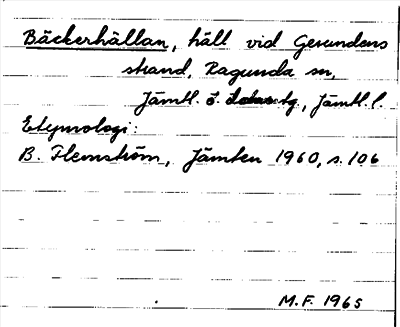 Bäckerhällan, häll vid Gesundens
strand, Ragunda sn,
Jämtl. ö. domsag., Jämtl. l.
Etymologi:
B. Flemström, Jämten 1960, s. 106
M.F. 1965